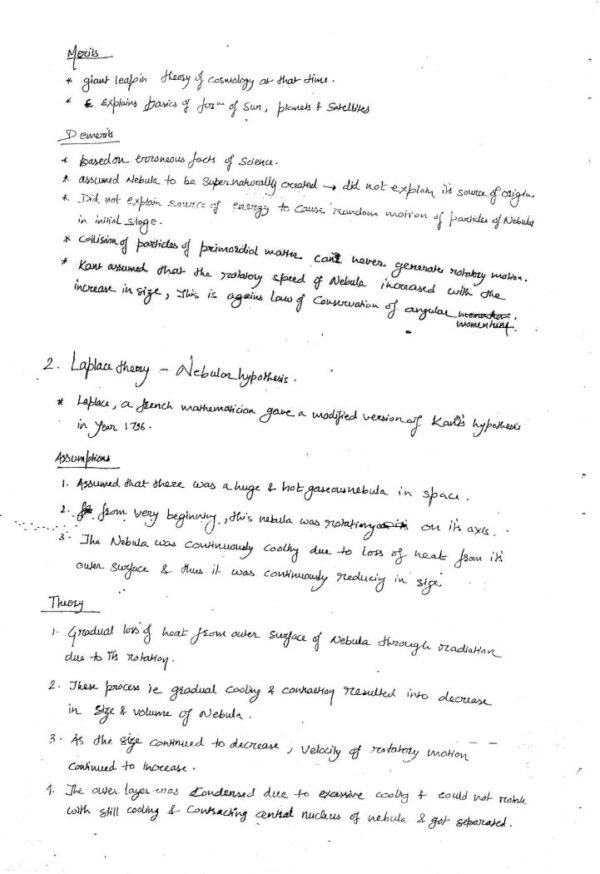 Merits
* giant leap in theory of cosmology at that time.
* Explains basics of form of Sun, planets & Satellites
Demerits
* Based on erroneous facts of Science.
* assumed Nebula to be Supernaturally created → did not explain its source of origin.
* Did not explain source of energy to cause random motion of particles of Nebula
in initial stage.
* Collision of particles of primordial matter can never generate rotatory motion.
* Kant assumed that the rotatory speed of Nebula increased with the
increase in size, This is agains Law of Conservation of angular
momentum.
2. Laplace theory – Nebular hypothesis.
* Laplace, a french mathematician gave a modified version of Kant's hypothesis
in year 1796.
Assumptions
1. Assumed that there was a huge & hot gaseous nebula in space.
2. from very beginning, this nebula was rotating on its axis.
3. The Nebula was continuously cooling due to loss of heat from its
outer surface & thus it was continuously reducing in size.
Theory
1. Gradual loss of heat from outer surface of Nebula through radiation
due to its rotation.
2. These process ie gradual cooling & contraction resulted into decrease
in size & volume of Nebula.
3. As the size continued to decrease, velocity of rotatory motion
continued to increase.
4. The outer layer was condensed due to excessive cooling & could not rotate
with still cooling & contracting central nucleus of nebula & got separated.